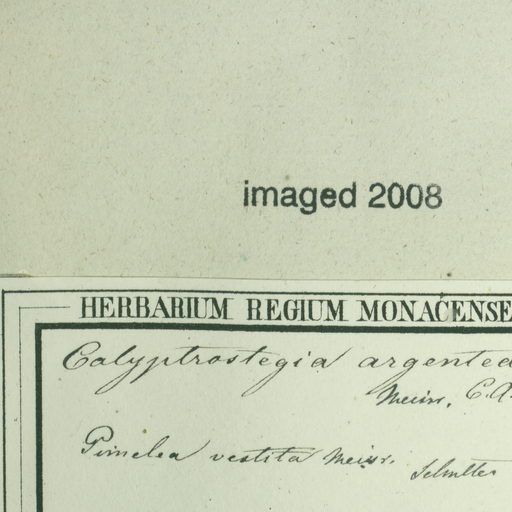 imaged 2008
HERBARIUM REGIUM MONACENSE
Calyptrostegia argentea
Meisn. C.A.
Pimelea vestita Meisn.